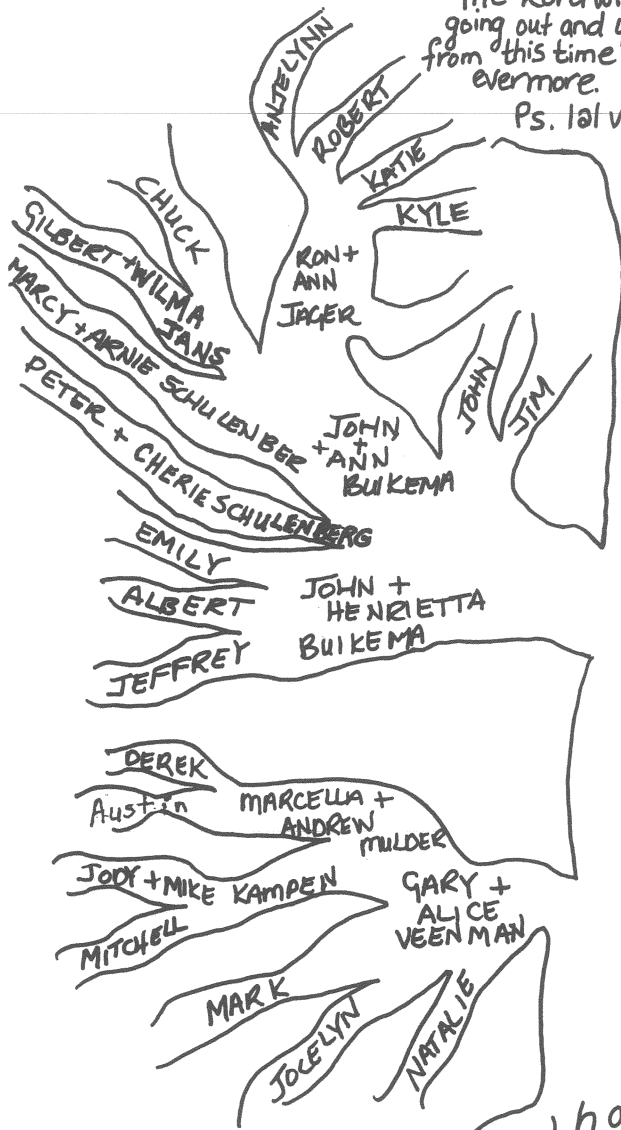 going out and
from this time
evermore.
Ps. 121 v
ANJELYNN
ROBERT
KATIE
KYLE
CHUCK
GILBERT + WILMA
JANS
RON +
ANN
JAGER
MARCY + ARNIE SCHULENBER
PETER + CHERIE SCHULENBERG
JOHN
JIM
JOHN
+
+ANN
BUIKEMA
EMILY
ALBERT
JEFFREY
JOHN +
HENRIETTA
BUIKEMA
DEREK
Austin
MARCELLA +
ANDREW
MULDER
JODY + MIKE KAMPEN
MITCHELL
GARY +
ALICE
VEENMAN
MARK
JOCELYN
NATALIE